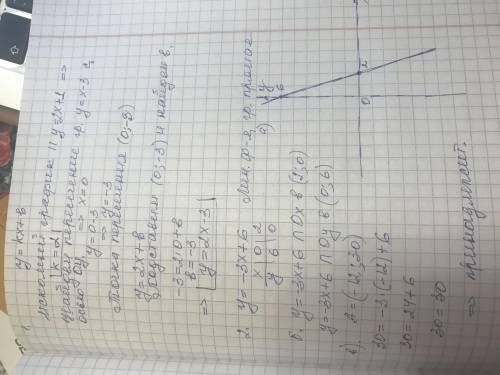 1. y = kx+b
искомый график || y=2x+1 =>
=> k=2
найдём пересечение гр. y=x-3 с
осью Oy => x=0
y=0-3
=> y=-3
Точка пересечения (0;-3)
y=2x+b
подставим (0;-3) и найдём b.
-3=2·0+b
b=-3
=> y=2x-3
2. y=-3x+6 лин. ф-я, гр. прямая
x 0 2
y 6 0
а)
y
6
0
2
б. y=-3x+6 ∩ Ox в (2;0)
y=-3x+6 ∩ Oy в (0;6)
в)
30=-3·(-8)+6
30=24+6
30=30
=> принадлежит.